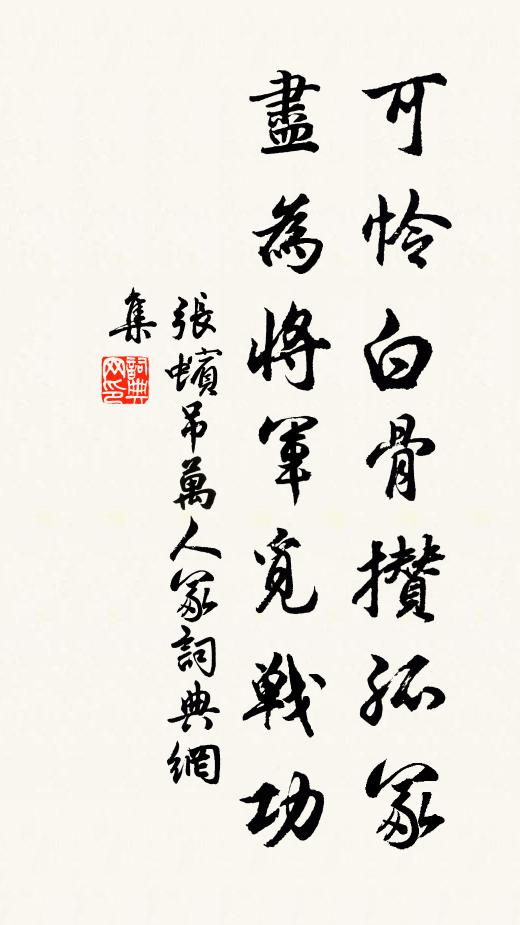 可憐白骨攢孤冢
盡為將軍覓戰功
張蠙吊萬人冢詞典網
集
詞典網印